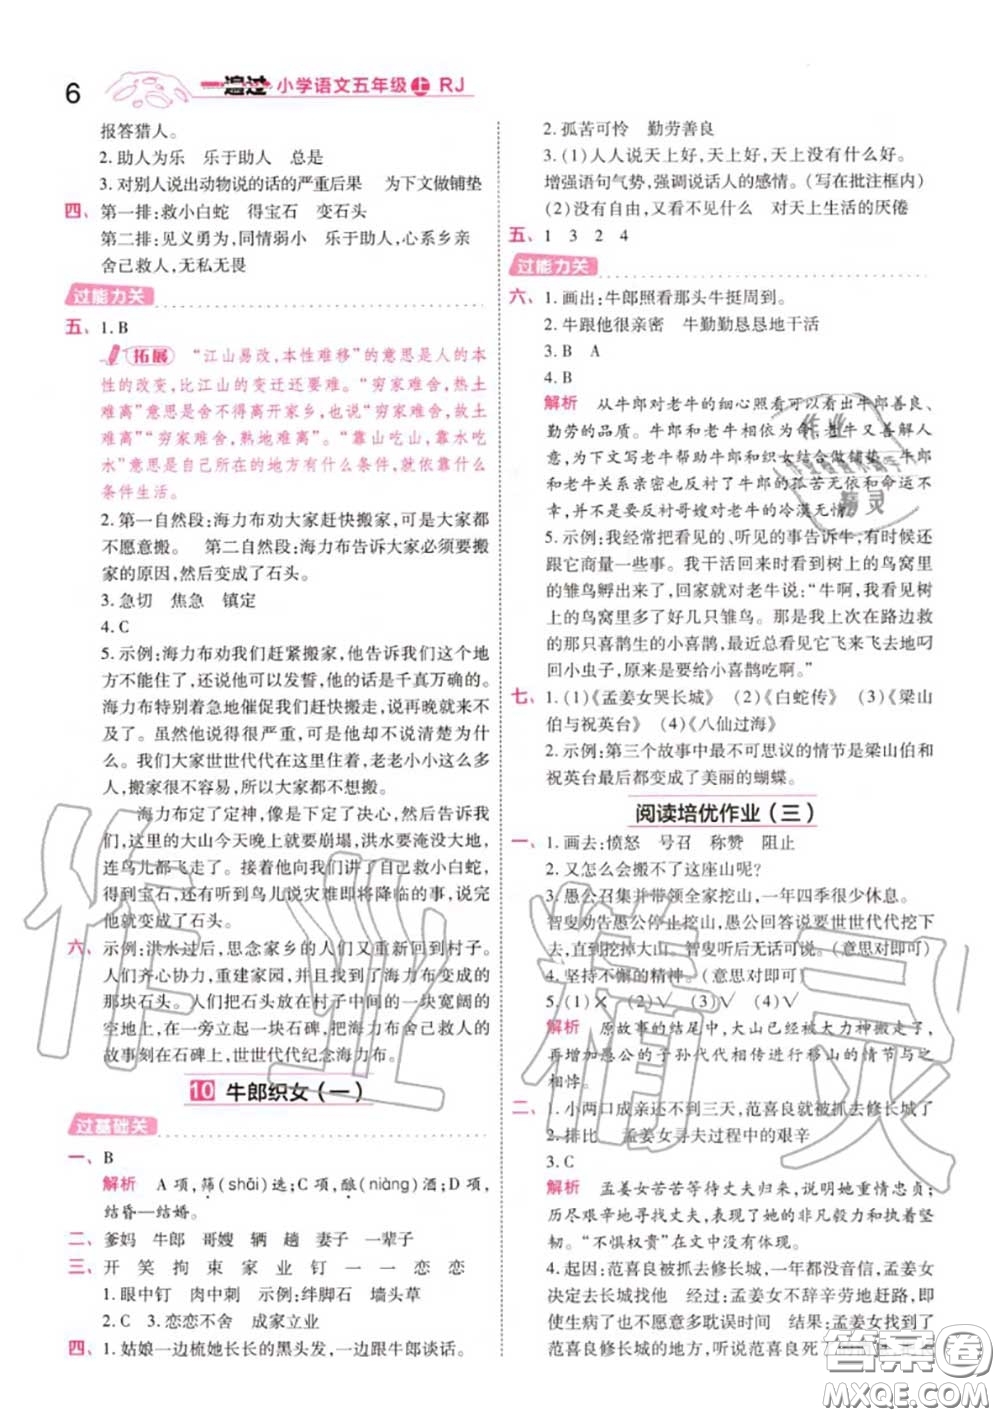 6
一遍过 小学语文五年级 上 RJ
报答猎人。
2. 助人为乐 乐于助人 总是
3. 对别人说出动物说的话的严重后果 为下文做铺垫
四、 第一排:救小白蛇 得宝石 变石头
第二排:见义勇为,同情弱小 乐于助人,心系乡亲
舍己救人,无私无畏
过能力关
五、 1. B
拓展 “江山易改,本性难移”的意思是人的本
性的改变,比江山的变迁还要难。“穷家难舍,热土
难离”意思是舍不得离开家乡,也说“穷家难舍,故土
难离”“穷家难舍,熟地难离”。“靠山吃山,靠水吃
水”意思是自己所在的地方有什么条件,就依靠什么
条件生活。
2. 第一自然段:海力布劝大家赶快搬家,可是大家都
不愿意搬。 第二自然段:海力布告诉大家必须要搬
家的原因,然后变成了石头。
3. 急切 焦急 镇定
4. C
5. 示例:海力布劝我们赶紧搬家,他告诉我们这个地
方不能住了,还说可以发誓,他的话是千真万确的。
海力布特别着急地催促我们搬走,说再晚就来不
及了。虽然他说得很严重,可是却不说清楚为什么
什么。我们大家世世代代在这里居住,老老小小这么多
人,搬家很不容易,所以大家都不想搬。
海力布定了定神,像是下定了决心,然后镇定地对我
们说,这里的大山今天晚上就要崩塌,洪水要来了,
连鸟儿都飞走了。接着他向我们讲了自己救小白蛇,
得到宝石,以及听到鸟儿说灾难即将降临的事,说完
他就变成了石头。
六、 示例:洪水过后,思念家乡的人们又重新回到村子。
人们齐心协力,重建家园,并找到了海力布变成的
那块石头。人们把石头放在村子中间的一块宽阔的
空地上,在一旁立起一块石碑,把海力布舍己救人的
故事刻在石碑上,世世代代纪念海力布。
10 牛郎织女(一)
过基础关
一、 B
解析 A项,筛(shāi)选;C项,酿(niàng)酒;D项,
结昏—结婚。
二、 爹妈 牛郎 哥嫂 辆 趟 妻子 一辈子
三、 开 笑 拘 束 家 业 钉 一 一 恋 恋
1. 眼中钉 肉中刺 示例:绊脚石 墙头草
2. C 3. 恋恋不舍 成家立业
四、 1. 姑娘一边梳她长长的黑头发,一边跟牛郎谈话。
2. 孤苦可怜 勤劳善良
3. (1)人人说天上好,天上好,天上没有什么好。
增强语句气势,强调说话人的感情。(写在批注框内)
(2)没有自由,又看不见什么 对天上生活的厌倦
五、 1 3 2 4
过能力关
六、 1. 画出:牛郎照看那头牛挺周到。
2. 牛跟他很亲密 牛勤勤恳恳地干活
3. B A
4. B
解析 从牛郎对老牛的细心照看可以看出牛郎善良、
勤劳的品质。牛郎和老牛相依为命,老牛又善解人
意,为下文写老牛帮助牛郎和织女结合做铺垫。牛郎
和老牛关系亲密也反衬了牛郎的孤苦无依的命运,
并不是要反衬哥嫂对老牛的冷漠无情。
5. 示例:我经常把看见的、听见的事告诉牛,有时候
跟它商量一些事。我干活时看到树上的鸟窝里
的雏鸟孵出来了,回家就对老牛说:“牛啊,我看见树
上的鸟窝里多了好几只雏鸟。那是我上次在路边救
的那只喜鹊生的小喜鹊,最近总看见它飞来飞去地叼
回小虫子,原来是要给小喜鹊吃啊。”
七、 1. (1)《孟姜女哭长城》 (2)《白蛇传》 (3)《梁山
伯与祝英台》 (4)《八仙过海》
2. 示例:第三个故事中最不可思议的情节是梁山伯和
祝英台最后都变成了美丽的蝴蝶。
阅读培优作业(三)
一、 1. 画去:愤怒 号召 称赞 阻止
2. 又怎么会搬不了这座山呢?
3. 愚公召集并带领全家挖山,一年四季很少休息。
智叟劝告愚公停止挖山,愚公回答说要世世代代挖下
去,直到挖掉大山。智叟听后无话可说。(意思对即可)
4. 坚持不懈的精神。(意思对即可)
5. (1)× (2)√ (3)√ (4)×
解析 原故事的结尾中,大山已经被大力神搬走了,
再增写愚公的子孙代代相传进行移山的情节与之
相悖。
二、 1. 小两口成亲还不到三天,范喜良就被抓去修长城了
2. 排比 孟姜女寻夫过程中的艰辛
3. C
解析 孟姜女苦苦等待丈夫归来,说明她重情忠贞;
历尽艰辛寻找丈夫,表现了她的非凡毅力和执着坚
强。“不惧权贵”在文中没有体现。
4. 起因:范喜良被抓去修长城,一年都没音信,孟姜女
决定去寻找他 经过:孟姜女不辞辛劳地赶路,即
使生病了也不愿意多耽误时间 结果:孟姜女找到了
修长城的地方,听说范喜良死
作业精灵
答案圈
MXQE.COM